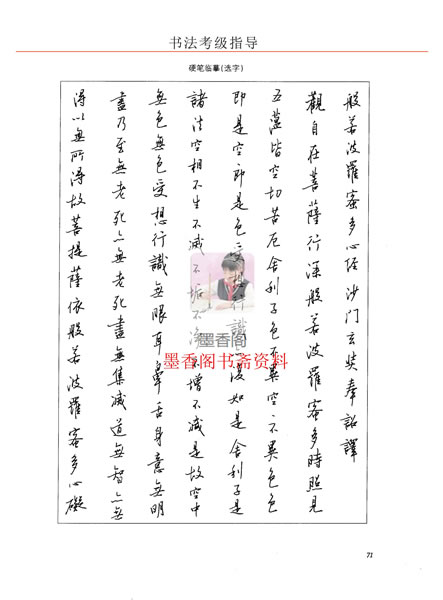 书法考级指导
硬笔临摹(选字)
般若波羅蜜多心经沙门玄奘奉詔譯
觀自在菩薩行深般若波羅蜜多時照見
五蘊皆空切苦厄舍利子色不異空不異色色
即是空即是色受行識復如是舍利子是
諸法空相不生不滅不垢不淨不增不減是故空中
無色無色受想行識無眼耳鼻舌身意無明
盡乃至無老死亦無老死盡無集滅道無智亦無
得以無所得故菩提薩依般若波羅蜜多心礙
墨香阁
墨香阁书斋资料
71